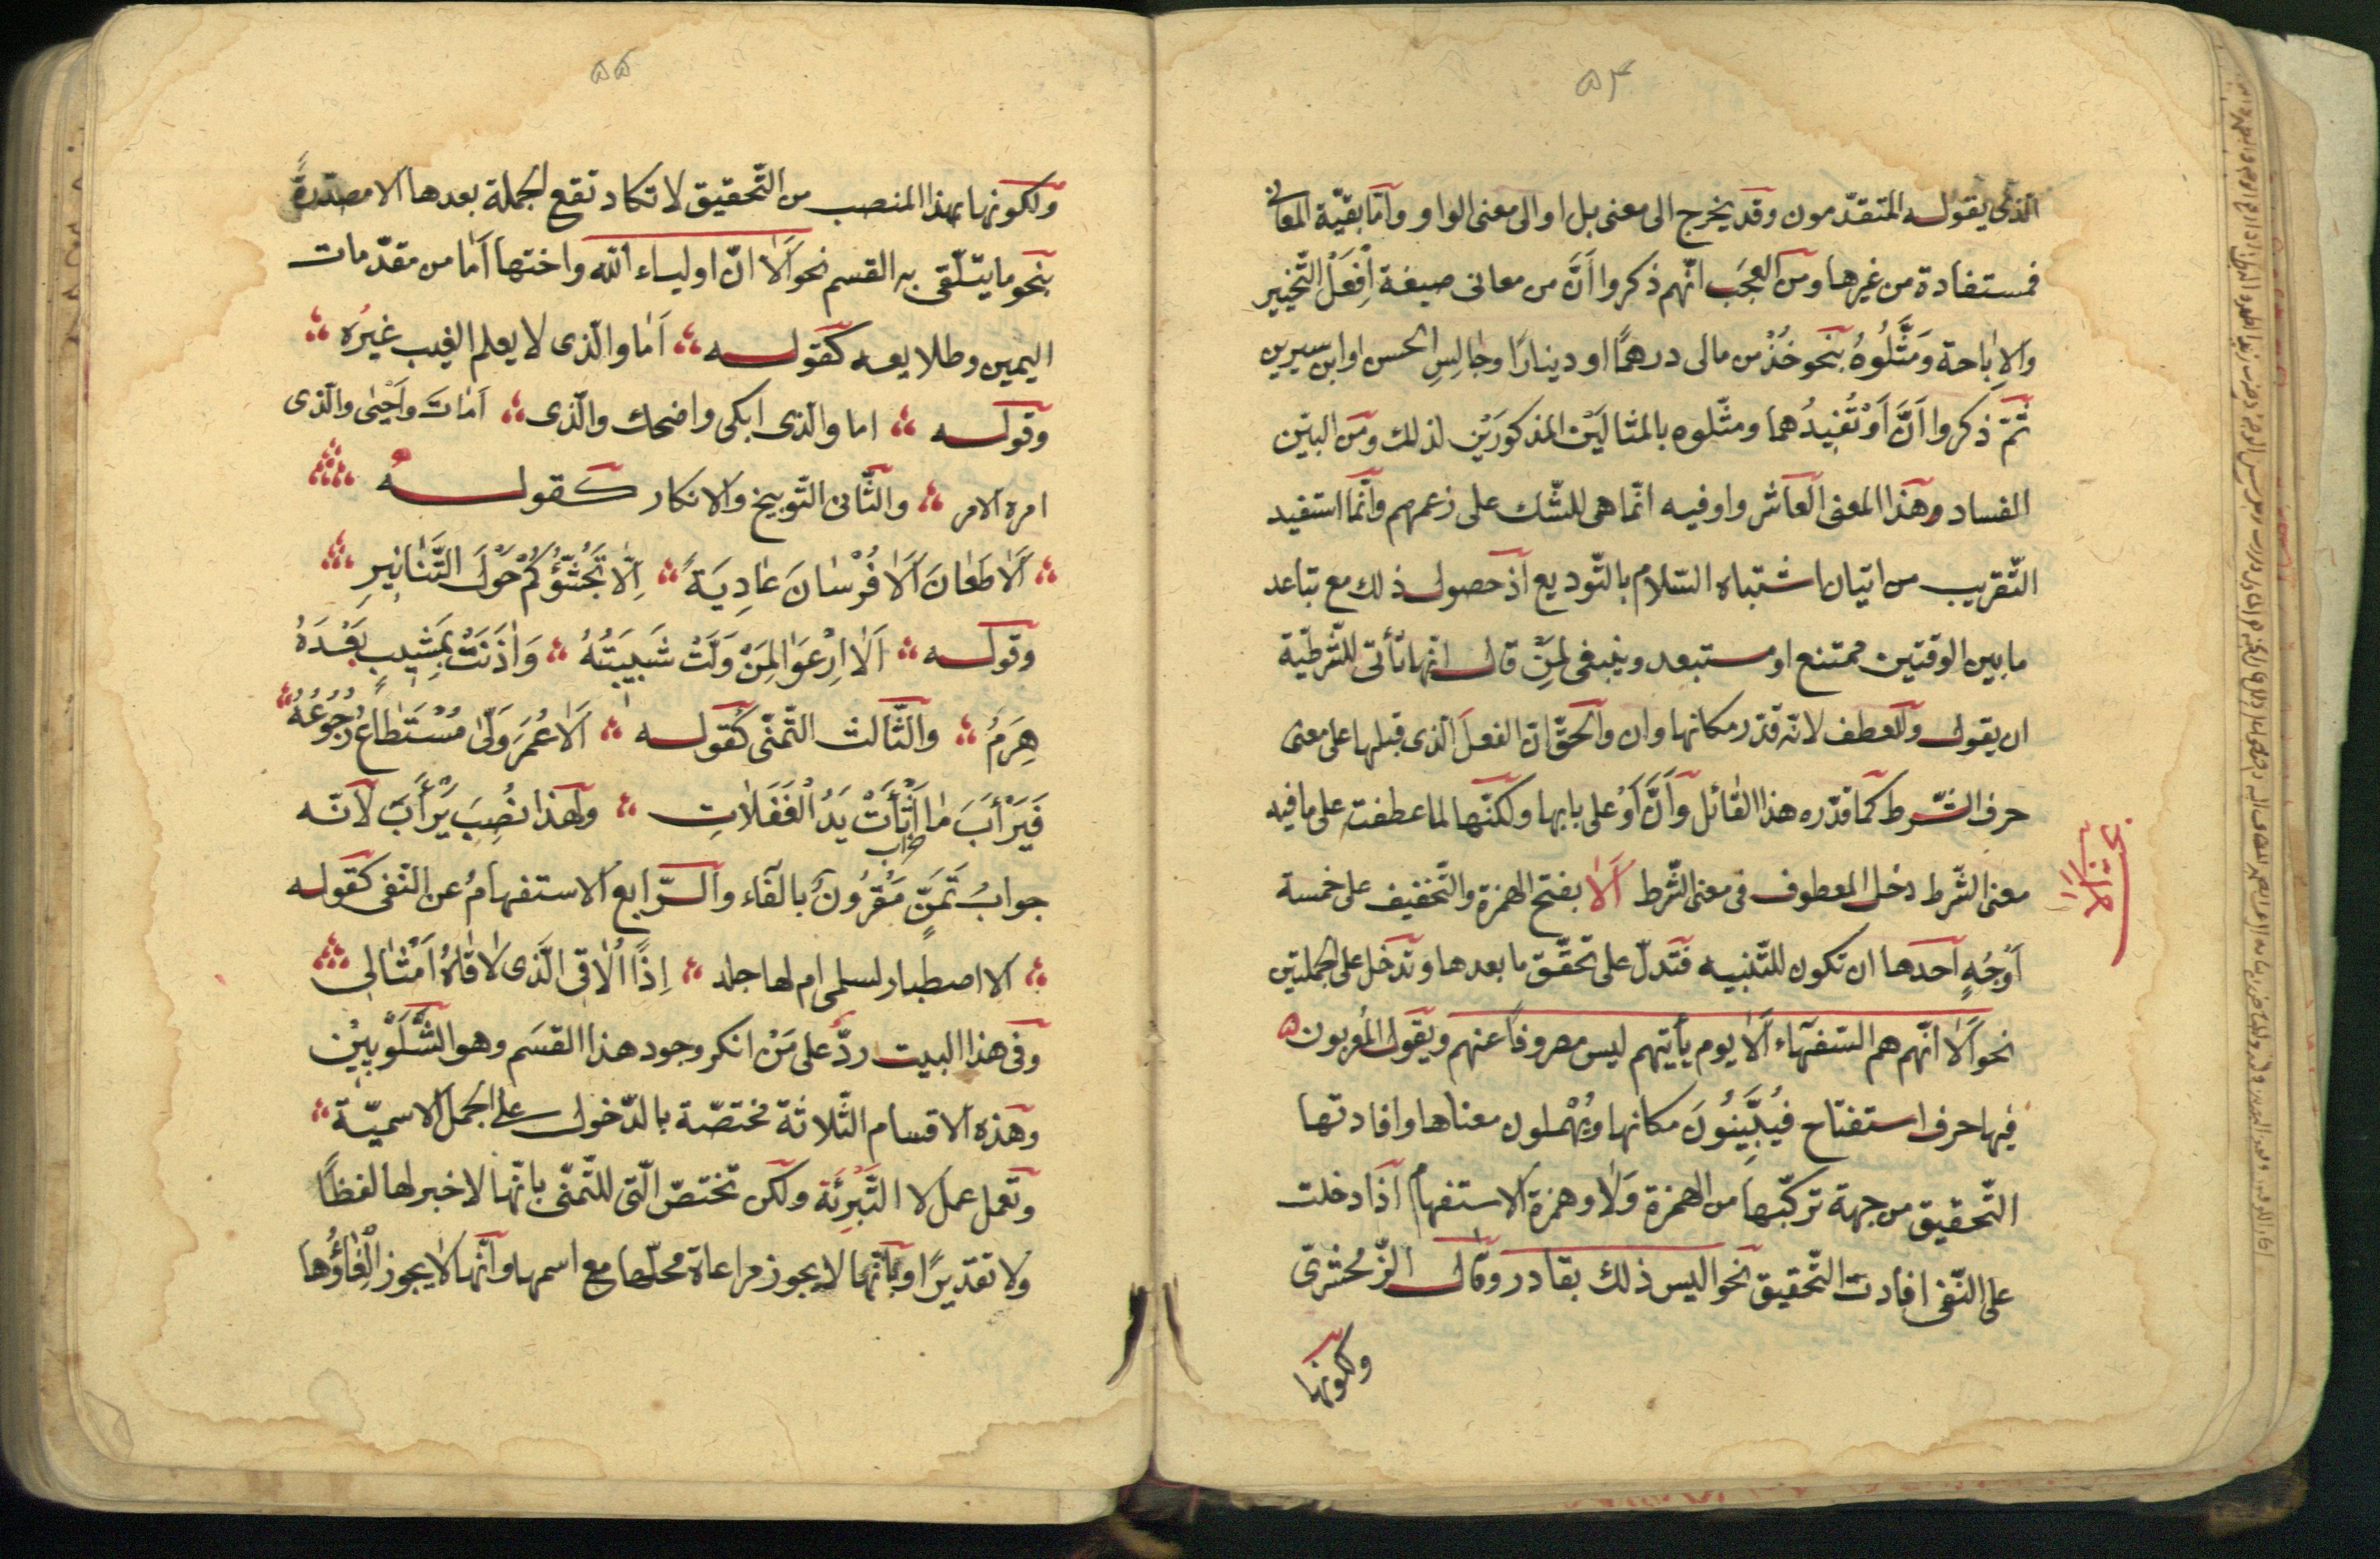 ٥٤
الذى يقوله المتقدّمون وقد يخرج الى معنى بل او الى معنى الواو وأمّا بقيّة المعانى
فمستفادة من غيرها ومن العجَب انّهم ذكروا أنَّ من معانى صيغة اِفْعَلْ التّخيير
والاِباحة وَمَثَّلُوهُ بنحو خُذْ من مالى درهمًا او دينارًا وجالِسِ الحسن او ابن سيرين
ثمّ ذكروا اَنَّ اَوْ تُفِيدُهما ومثّلوه بالمثالَيْن المذكورَيْن لذلك ومن البيّن
الفساد وهذا المعنى العاشر واو فيه انّما هى للشّك على زعمهم وانّما استفيد
التّقريب من اتيان اشتباه السّلام بالتّوديع اذ حصول ذلك مع تباعد
ما بين الوقتين ممتنع او مستبعد وينبغى لمَنْ قال انّها تأتى للشّرطيّة
ان يقول وللعطف لانّه قدّر مكانها وان والحقّ انّ الفعلَ الّذى قبلها على معنى
حرف الشّرط كما قدّره هذا القائل وأنَّ اَوْ على بابها ولكنّها لما عطفت على ما فيه
معنى الشّرط دخل المعطوف فى معنى الشّرط اَلَا بفتح الهمزة والتّخفيف على خمسة
اَوْجُهٍ احدها ان تكون للتّنبيه فتدلّ على تحقّق ما بعدها وتدخل على الجملتين
نحو اَلَا انّهم هم السّفهآء اَلَا يوم يأتيهم ليس مصروفا عنهم ويقول المُعربون
فيها حرف استفتاح فيُبَيِّنُونَ مكانها ويُهْملون معناها وافادتها
التّحقيق من جهة تركّبها من الهمزة وَلَا وهمزة الاستفهام اذا دخلت
على النّفى افادت التّحقيق نحو اليس ذلك بقادر وقال الزّمخشرىّ
ولكونها
٥٥
ولكونها بهذا المنصب من التّحقيق لا تكاد تقع الجملة بعدها الا مصدّرةً
بنحو ما يتلّقى به القسم نحو اَلَا انّ اولياء الله واختها اَمَا من مقدّمات
اليمين وطلايعه كقوله اَمَا والّذى لا يعلم الغيب غيرُه
وقوله اما والّذى ابكى واضحك والّذى اَمَاتَ واَحْيَى والّذى
امره الامر والثّانى التّوبيخ والانكار كقوله
اَلَا طَعَانَ اَلَا فُرْسَانَ عَادِيَةً اِلّا تَجَشُّؤُكُمْ حَوْلَ التَّنَانِيرِ
وقوله اَلَا ارْعِوَا لِمَنْ وَلَّتْ شَبِيبَتُهُ وَاٰذَنَتْ بِمَشِيبٍ بَعْدَهُ
هِرَمُ والثّالث التّمنّى كقوله اَلَا عُمَرَ وَلّىٰ مُسْتَطَاعٌ رُجُوعُهُ
فَيَرْأَبَ مَا اَثْأَتْ يَدُ الْغَفَلَاتِ ولهذا نُصِبَ يَرْأَبَ لانّه
جوابُ تَمَنٍّ مَقْرُونٌ بالفاء والرّابع الاستفهامُ عن النّفى كقوله
الا اصطبار لسلمى ام لها جلد اِذًا اُلَاقِى الَّذِى لَاقَاهُ اَمْثَالِى
وفى هذا البيت ردّ على مَنْ انكر وجود هذا القسَم وهو الشَّلَوْبِيْن
وهذه الاقسام الثّلاثة مختصّة بالدّخول على الجمل الاسميّة
وتعمل عمل لا التَّبْرِئَة ولكن تختصّ الّتى للتّمنّى بانّها لا خبر لها لفظًا
ولا تقديرًا وبأنّها لا يجوز مراعاة محلّها مع اسمها وانّها لا يجوز اِلْغَاؤُها